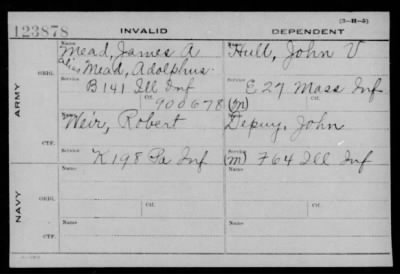 (3-H-5)
123878 INVALID DEPENDENT
ARMY
ORIG.
Name
Mead, James A
alias Mead, Adolphus
Service
B 141 Ill Inf
Ctf.
900678
Hull, John V
Service
E 27 Mass Inf
(m)
CTF.
Weir, Robert
Service
K 198 Pa Inf
Depuy, John
Service
(m) F 64 Ill Inf
NAVY
ORIG.
Name
Service
Ctf.
Name
Service
Ctf.
CTF.
Name
Service
Name
Service